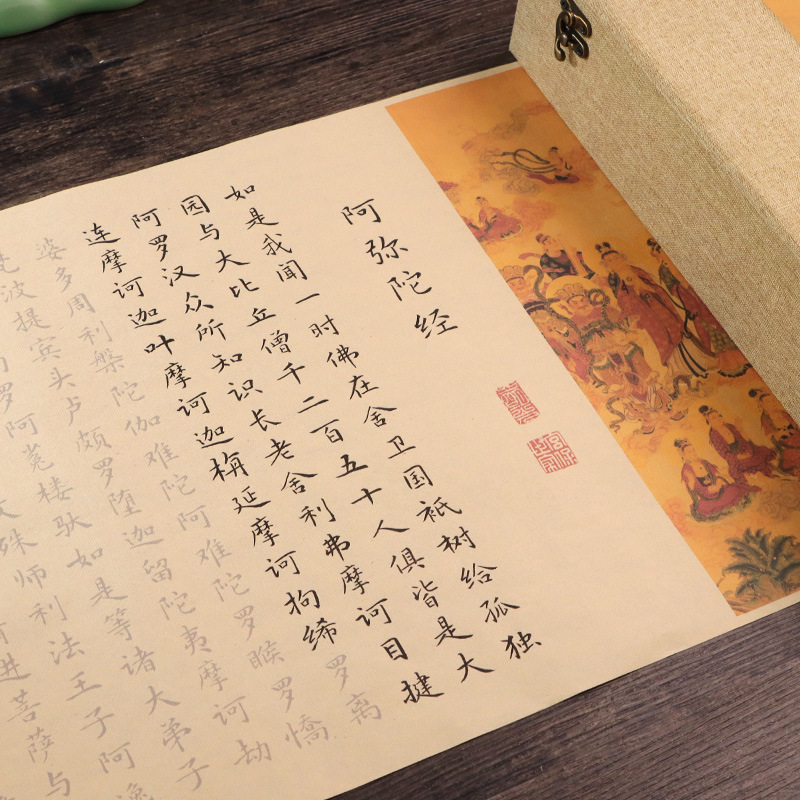 阿弥陀经
如是我闻一时佛在舍卫国祇树给孤独
园与大比丘僧千二百五十人俱皆是大
阿罗汉众所知识长老舍利弗摩诃目揵
连摩诃迦叶摩诃迦栴延摩诃拘𫄨罗离
婆多周利槃陀伽难陀阿难陀罗睺罗憍
梵波提宾头卢颇罗堕迦留陀夷摩诃劫
罗阿㝹楼驮如是等诸大弟子
殊师利法王子阿逸
进菩萨与